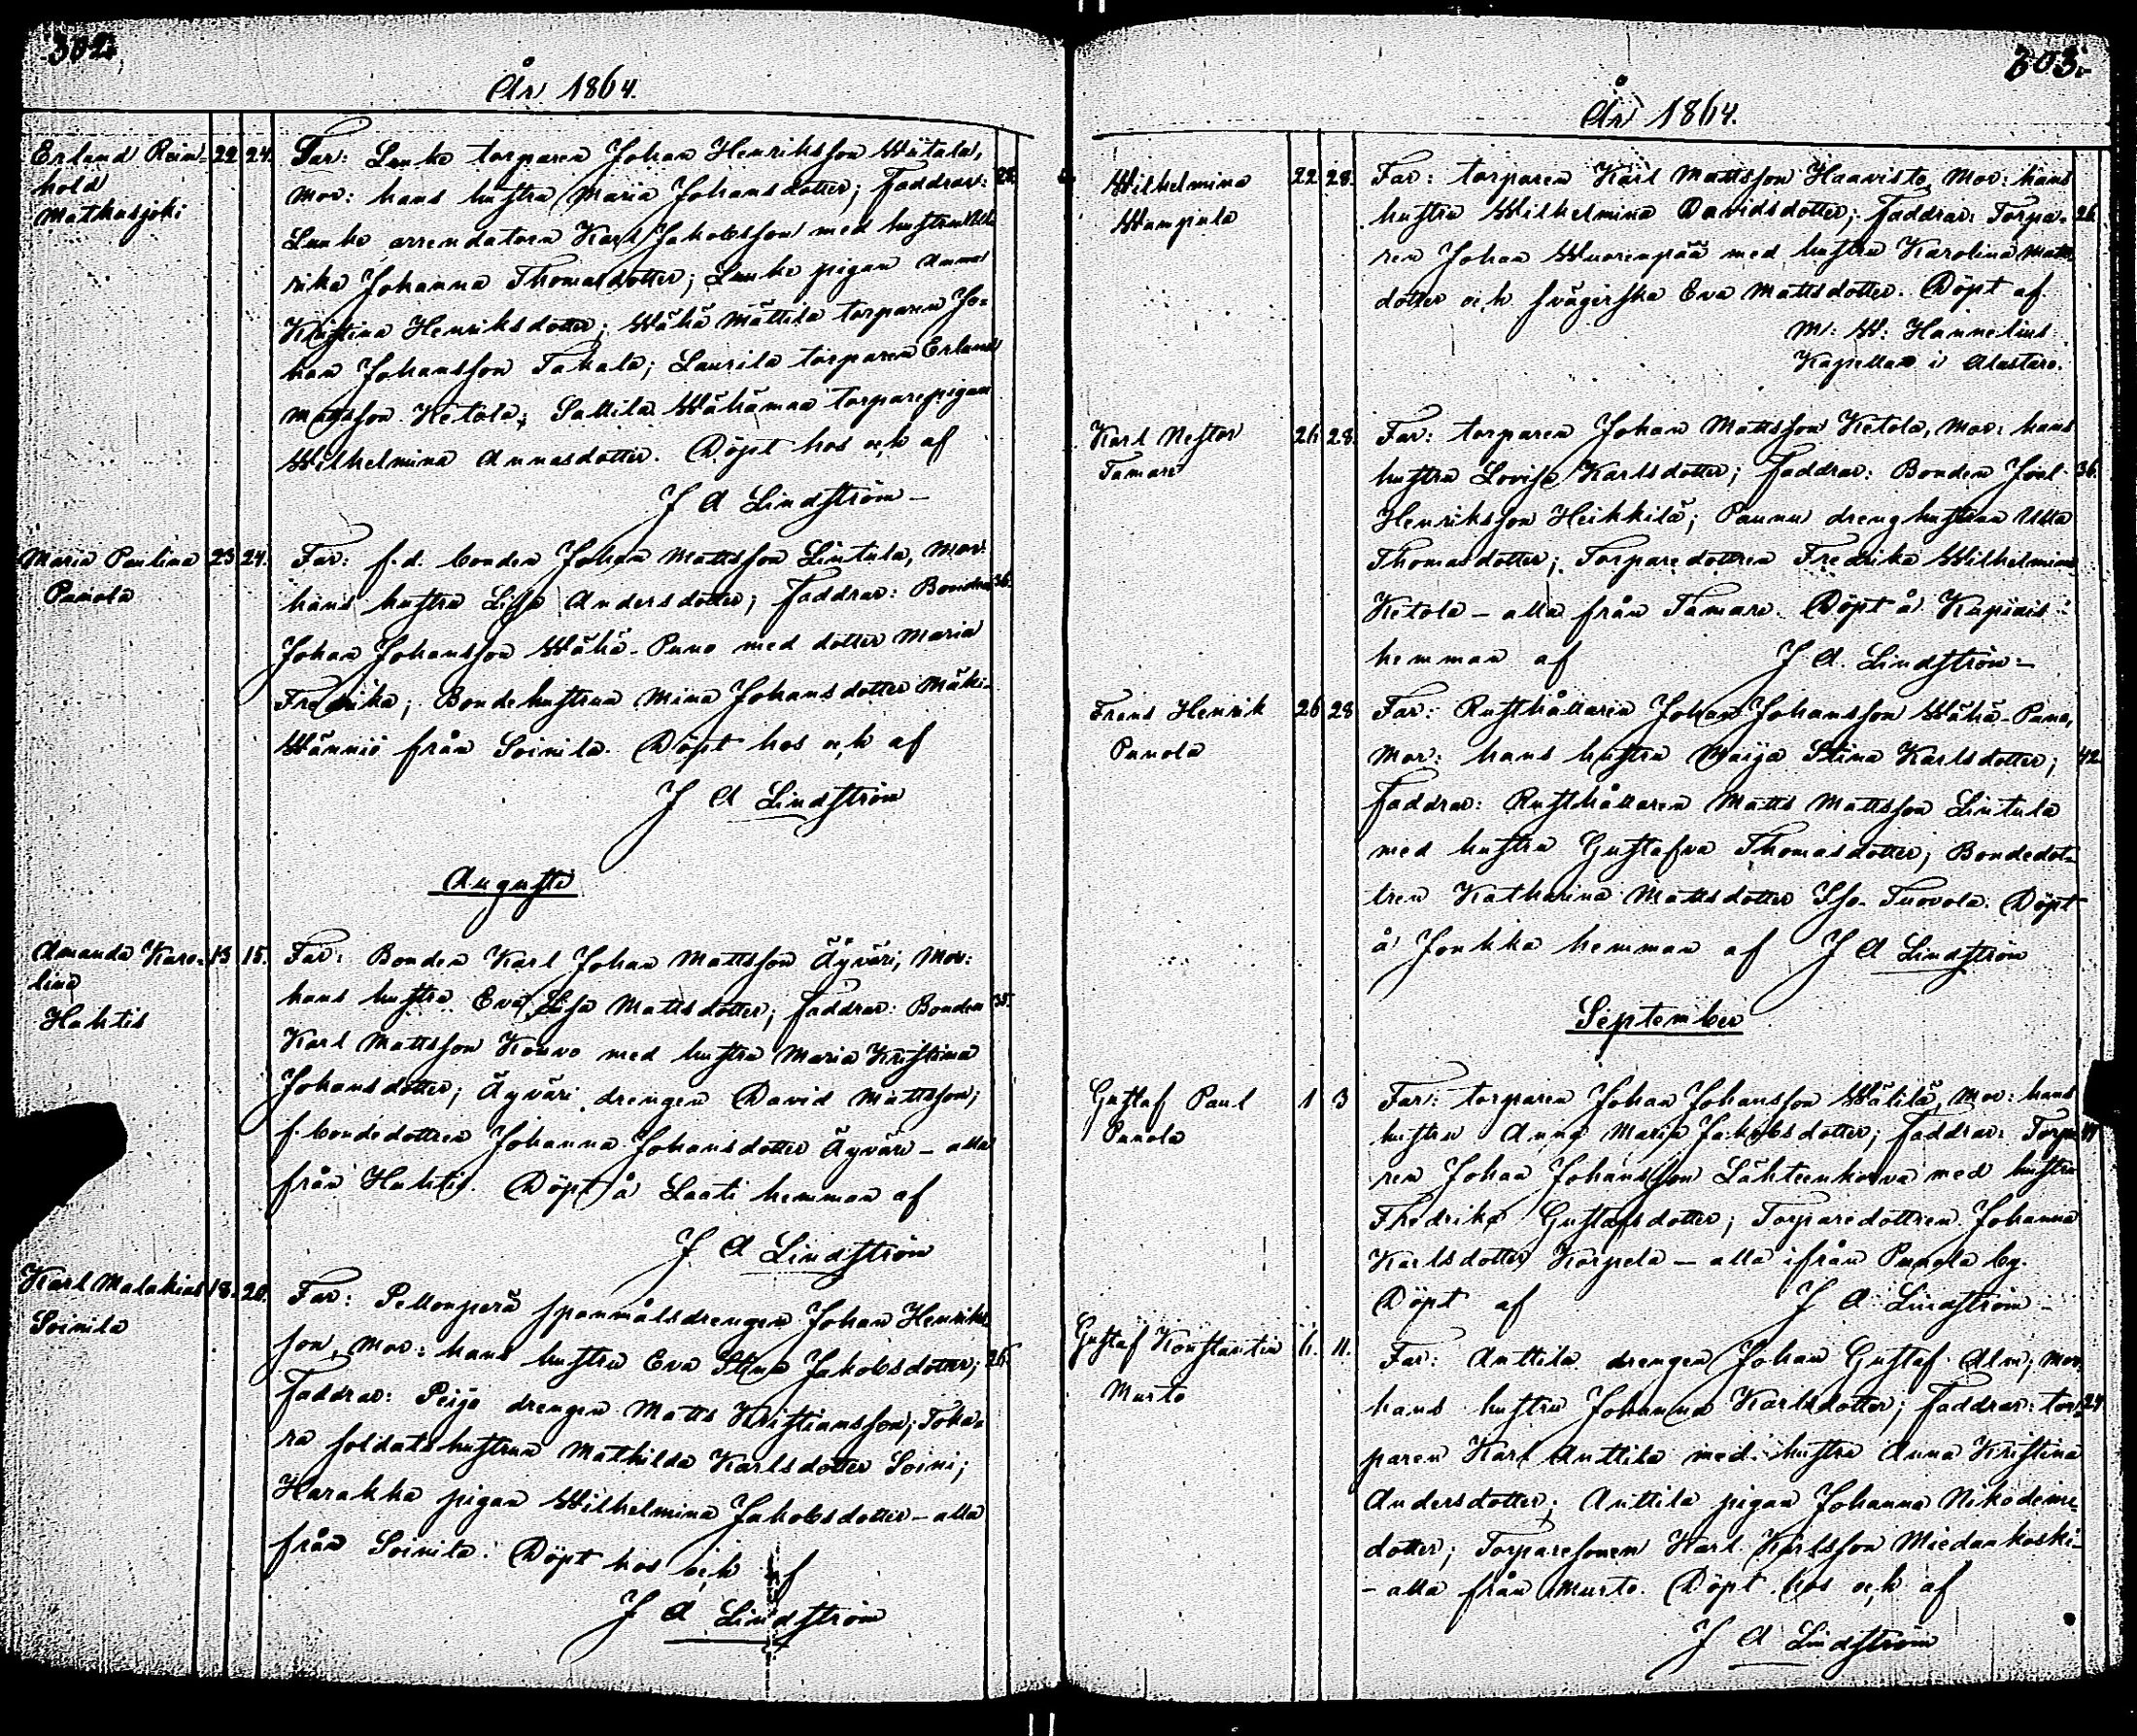 302.
År 1864.
Erland Rein- 22 24. Far: Lauko torparen Johan Henriksson Wätala,
hold Mor: hans hustru Maria Johansdotter; Faddrar:
Mathusjoki Lauko arrendatorn Karl Jakobsson med hustru Ul-
rika Johanna Thomasdotter; Lauko pigan Anna
Kristina Henriksdotter; Wähä Mättila torparen Jo-
han Johansson Takala; Laurila torparen Erland
Mattsson Ketola; Sallila Wähämaa torparepigan
Wilhelmina Annasdotter. Döpt hos och af
J A Lindström
Maria Paulina 23 24. Far: f.d. bonden Johan Mattsson Lintula, Mor:
Punola hans hustru Lisa Andersdotter; Faddrar: Bonden 36.
Johan Johansson Wähä-Puno med dotter Maria
Fredrika; Bondehustrun Mina Johansdotter Mäki-
Wänniö från Soinila. Döpt hos och af
J A Lindström
Augusti
Amanda Karo- 13 15. Far: Bonden Karl Johan Mattsson Äyväri, Mor:
lina hans hustru Eva Lisa Mattsdotter; Faddrar: Bonden 35.
Hahtis Karl Mattsson Kouvo med hustru Maria Kristina
Johansdotter; Äyväri drengen David Mattsson;
f. bondedottren Johanna Johansdotter Äyväri – alla
från Huhtis. Döpt å Laati hemman af
J A Lindström
Karl Malakias 18. 20. Far: Pellonperä spanmålsdrengen Johan Henriks-
Soinila son, Mor: hans hustru Eva Stina Jakobsdotter; 26.
Faddrar: Peijo drengen Matts Kristiansson; Toha-
ra soldatshustrun Mathilda Karlsdotter Soini;
Harakka pigan Wilhelmina Jakobsdotter – alla
från Soinila. Döpt hos och af
J A Lindström
303.
År 1864.
Wilhelmina 22 28. Far: torparen Karl Mattsson Haavisto, Mor: hans
Wampula hustru Wilhelmina Davidsdotter; Faddrar: Torpa- 26.
ren Johan Wuorenpää med hustru Karolina Matts-
dotter och svägerska Eva Mattsdotter. Döpt af
M: W: Hannelius
Kapellan i Alastaro.
Karl Nestor 26 28. Far: torparen Johan Mattsson Ketola, Mor: hans
Tamare hustru Lovisa Karlsdotter; Faddrar: Bonden Joel 36.
Henriksson Heikkilä; Paunu drenghustrun Ulla
Thomasdotter; Torparedottren Fredrika Wilhelmina
Ketola – alla från Tamare. Döpt å Kapiais
hemman af J A. Lindström
Frans Henrik 26 28 Far: Rusthållaren Johan Johansson Wähä-Puno,
Punola Mor: hans hustru Maija Stina Karlsdotter; 42.
Faddrar: Rusthållaren Matts Mattsson Lintula
med hustru Gustafva Thomasdotter; Bondedot-
tren Katharina Mattsdotter Iso-Tuovola. Döpt
å Jonkka hemman af J A Lindström
September
Gustaf Paul 1 3 Far: torparen Johan Johansson Wälilä, Mor: hans
Punola hustru Anna Maria Jakobsdotter; Faddrar: Torpa-
ren Johan Johansson Lähteenkorva med hustru
Fredrika Gustafsdotter; Torparedottren Johanna
Karlsdotter Korpela – alla ifrån Punola by.
Döpt af J A Lindström
Gustaf Konstantin 6. 11. Far: Anttila drengen Johan Gustaf Alm, Mor:
Murto hans hustru Johanna Karlsdotter; Faddrar: tor- 24
paren Karl Anttila med hustru Anna Kristina
Andersdotter; Anttila pigan Johanna Nikodemi-
dotter; Torparesonen Karl Karlsson Miedankoski
– alla från Murto. Döpt hos och af
J A Lindström